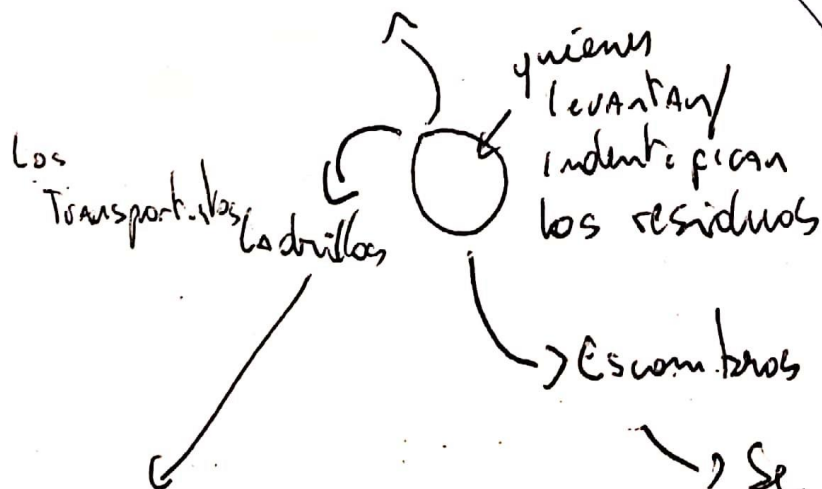 quienes
levantan/
indentifican
los residuos
Los
Transportistas
Ladrillos
Escombros
Se